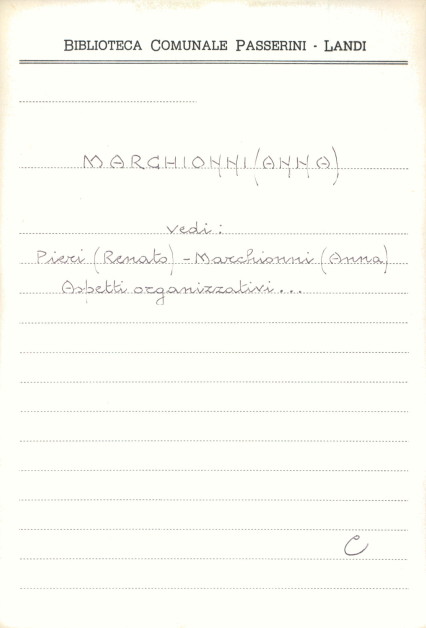 BIBLIOTECA COMUNALE PASSERINI - LANDI
MARCHIONNI (ANNA)
vedi:
Pieri (Renato) - Marchionni (Anna)
Aspetti organizzativi...
C